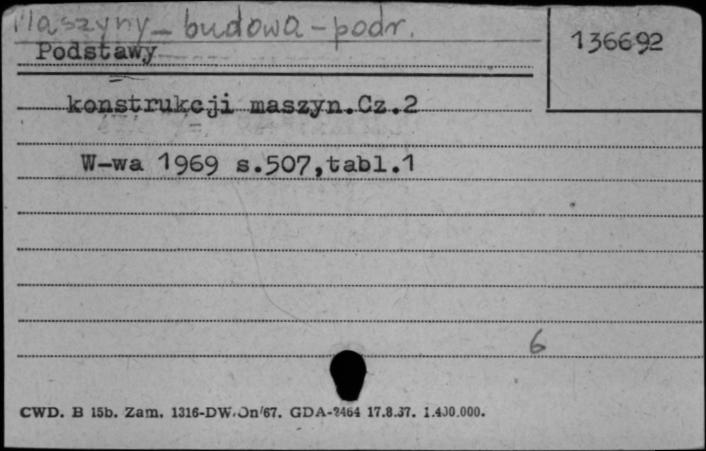 Maszyny - budowa - podr.
136692
Podstawy
konstrukcji maszyn.Cz.2
W-wa 1969 s.507,tabl.1
6
CWD. B 15b. Zam. 1316-DW.On/67. GDA-2464 17.8.67. 1.400.000.